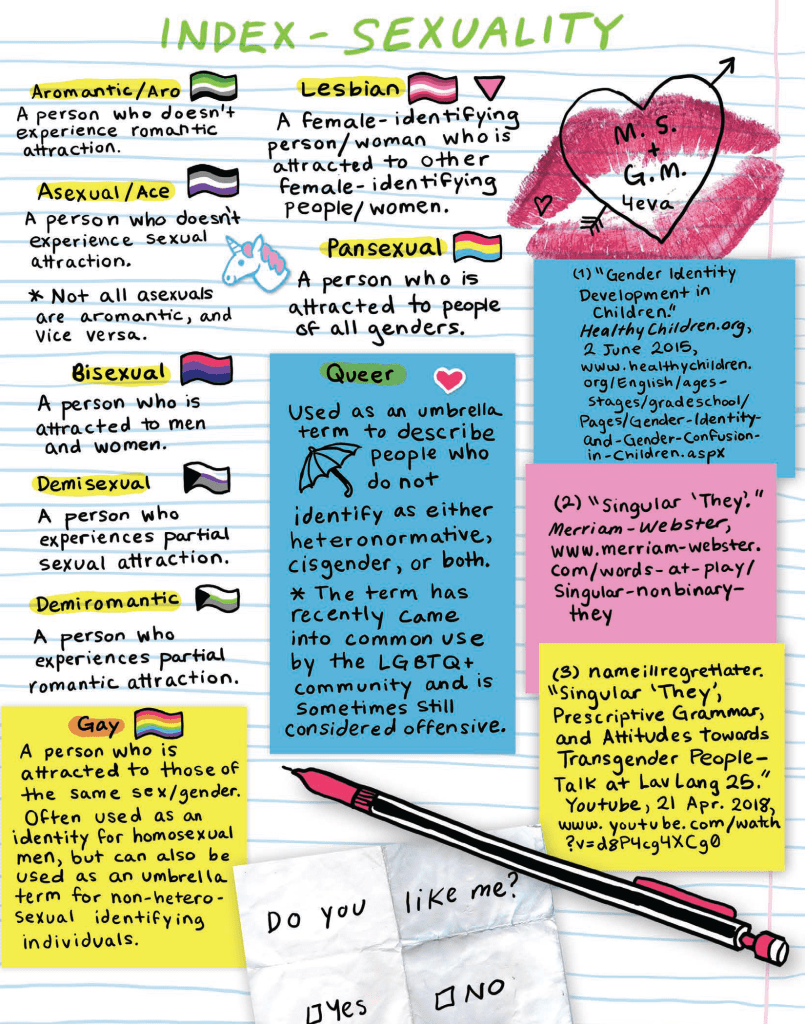 INDEX - SEXUALITY
Aromantic/Aro
A person who doesn't
experience romantic
attraction.
Asexual/Ace
A person who doesn't
experience sexual
attraction.
* Not all asexuals
are aromantic, and
vice versa.
Bisexual
A person who is
attracted to men
and women.
Demisexual
A person who
experiences partial
sexual attraction.
Demiromantic
A person who
experiences partial
romantic attraction.
Gay
A person who is
attracted to those of
the same sex/gender.
Often used as an
identity for homosexual
men, but can also be
used as an umbrella
term for non-hetero-
sexual identifying
individuals.
Lesbian
A female-identifying
person/woman who is
attracted to other
female-identifying
people/women.
Pansexual
A person who is
attracted to people
of all genders.
Queer
Used as an umbrella
term to describe
people who
do not
identify as either
heteronormative,
cisgender, or both.
* The term has
recently came
into common use
by the LGBTQ+
community and is
sometimes still
considered offensive.
M. S.
+
G.M.
4eva
(1) "Gender Identity
Development in
Children."
HealthyChildren.org,
2 June 2015,
www.healthychildren.
org/English/ages-
stages/gradeschool/
Pages/Gender-Identity-
and-Gender-Confusion-
in-Children.aspx
(2) "Singular 'They'."
Merriam-Webster,
www.merriam-webster.
com/words-at-play/
singular-nonbinary-
they
(3) nameiiiregretlater.
"Singular 'They',
Prescriptive Grammar,
and Attitudes towards
Transgender People-
Talk at Lav Lang 25."
Youtube, 21 Apr. 2018,
www.youtube.com/watch
?v=d8P4cg4XCg0
Do you like me?
Yes
NO